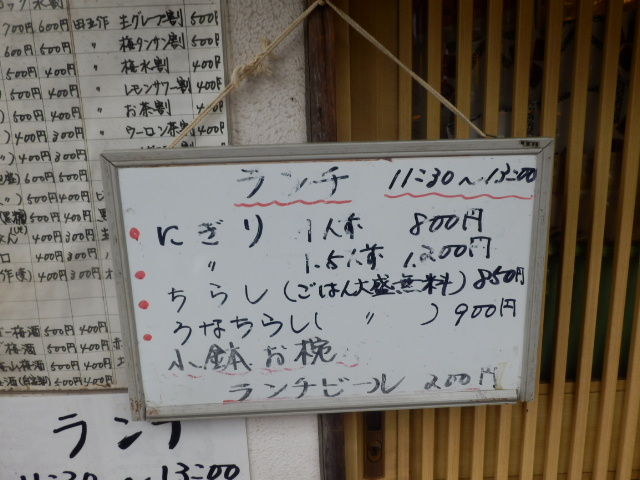 700円 600円 田五作 生グレープ割 500円
500円 〃 梅タンサン割 500円
500円 400円 〃 梅水割 400円
600円 500円 〃 レモンサワー割 400円
500円 400円 〃 お茶割 400円
400円 300円 〃 ウーロン茶割 400円
400円 300円
600円 500円
500円 400円
500円 400円
400円 300円
400円 300円
400円 300円
梅酒 500円 400円
梅酒 500円 400円
梅酒 500円 400円
500円 400円
ランチ 11:30～13:00
にぎり 1人前 800円
〃 1.5人前 1,200円
ちらし(ごはん大盛無料) 850円
うなちらし( 〃 ) 900円
小鉢 お椀
ランチビール 200円
ランチ
11:30～13:00